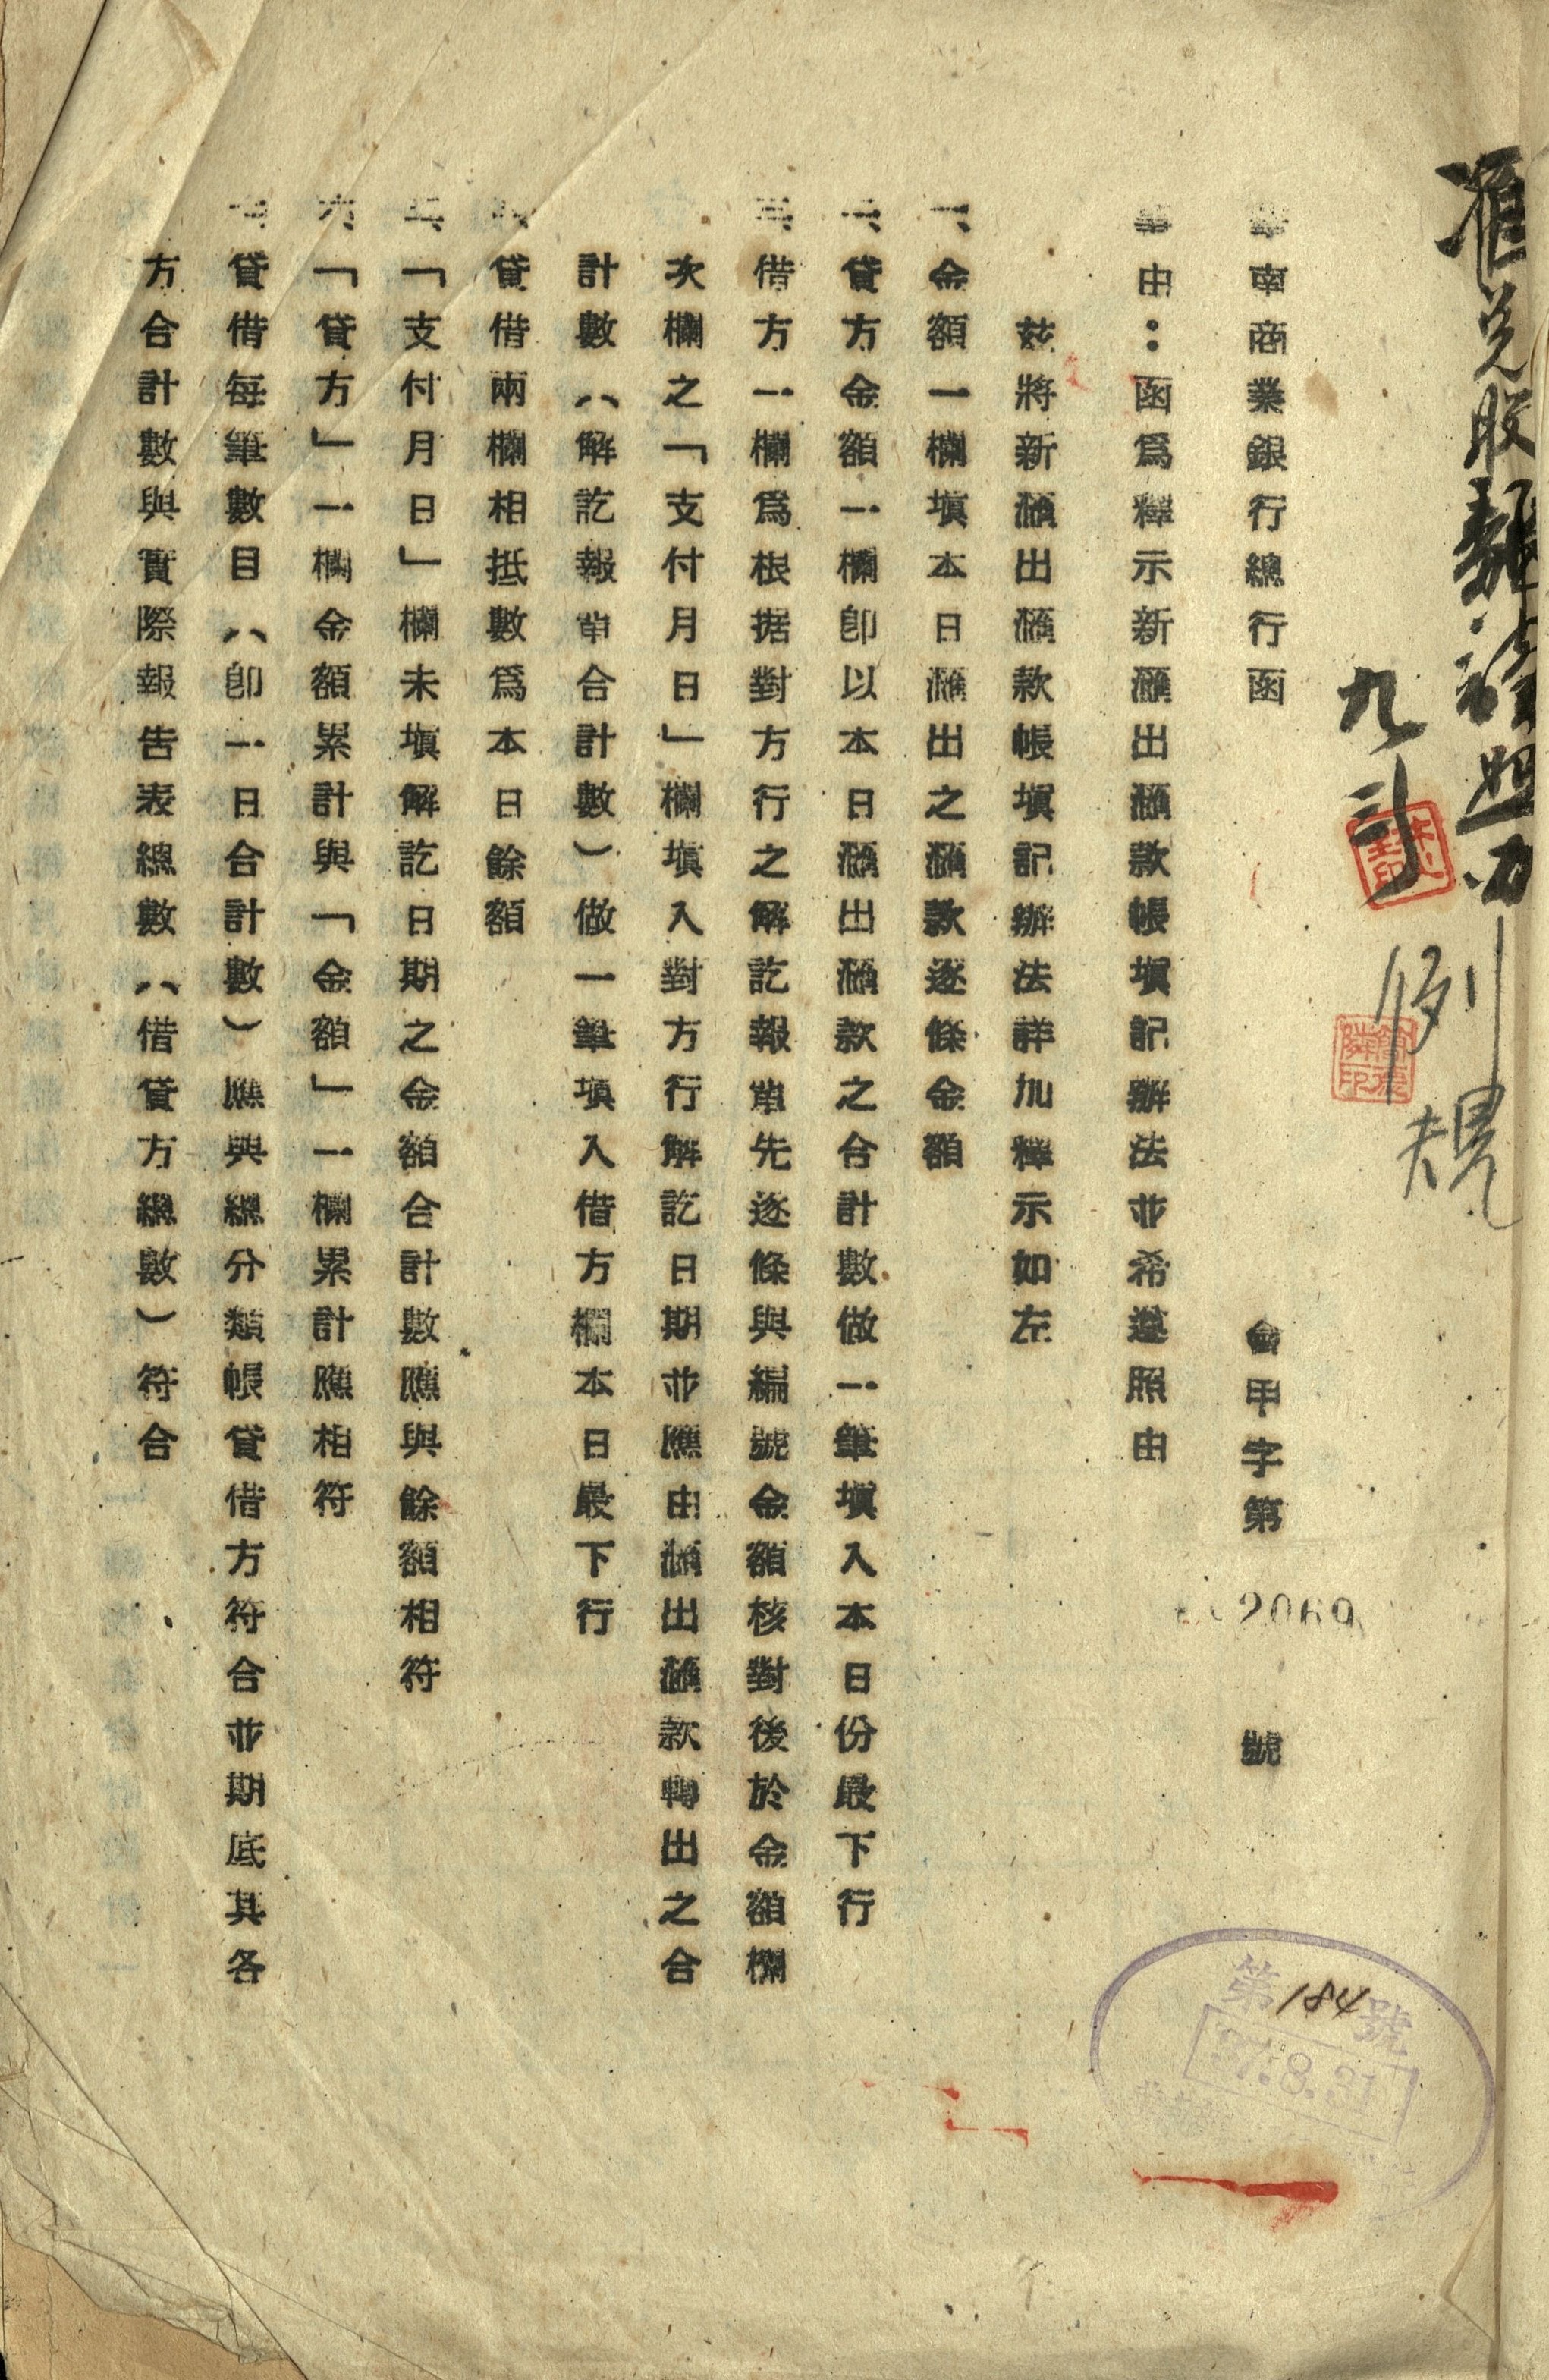 滙兌股報證照办
九、三
例規
華南商業銀行總行函　會甲字第 2069 號
事由：函為釋示新滙出滙款帳塡記辦法並希遵照由
茲將新滙出滙款帳塡記辦法詳加釋示如左
一、金額一欄塡本日滙出之滙款逐條金額
二、貸方金額一欄卽以本日滙出滙款之合計數做一筆塡入本日份最下行
三、借方一欄爲根据對方行之解訖報單先逐條與編號金額核對後於金額欄
次欄之「支付月日」欄塡入對方行解訖日期並應由滙出滙款轉出之合
計數（解訖報單合計數）做一筆塡入借方欄本日最下行
四、貸借兩欄相抵數爲本日餘額
五、「支付月日」欄未塡解訖日期之金額合計數應與餘額相符
六、「貸方」一欄金額累計與「金額」一欄累計應相符
七、貸借每筆數目（卽一日合計數）應與總分類帳貸借方符合並期底其各
方合計數與實際報告表總數（借貸方總數）符合
第184號
37.8.31